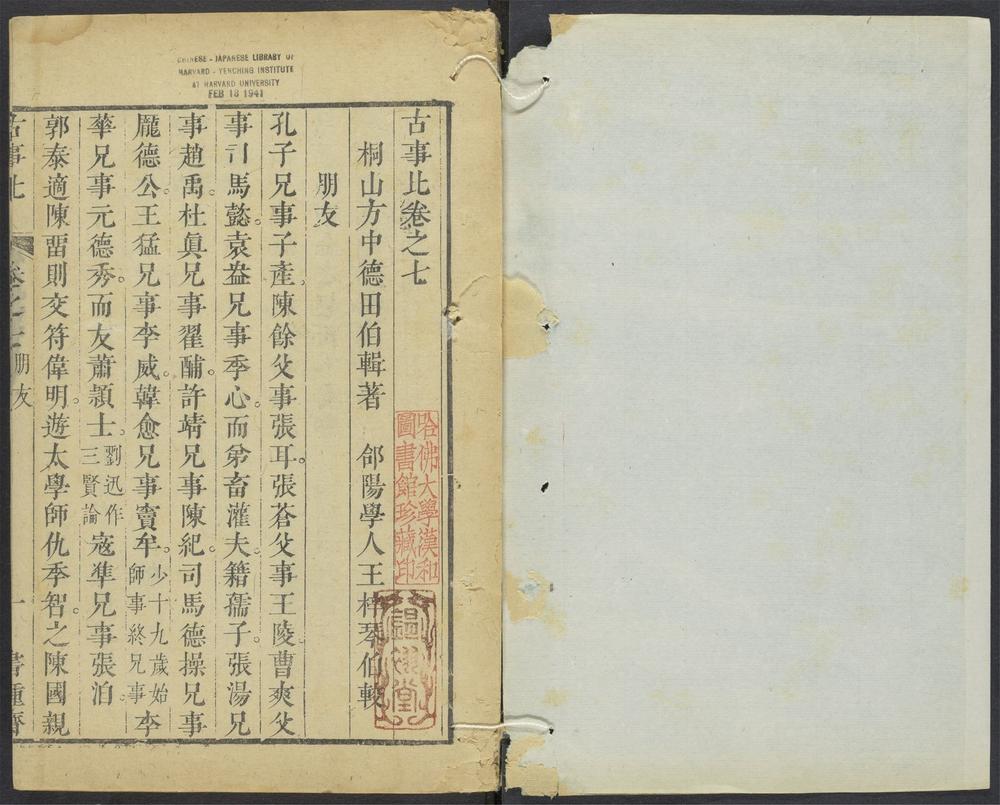 CHINESE - JAPANESE LIBRARY OF
HARVARD - YENCHING INSTITUTE
AT HARVARD UNIVERSITY
FEB 18 1941
古事比卷之七
桐山方中德田伯輯著　郃陽學人王梓琴伯較
朋友
孔子兄事子產。陳餘父事張耳。張蒼父事王陵。曹爽父
事司馬懿。袁盎兄事季心。而弟畜灌夫。籍孺子。張湯兄
事趙禹。杜眞兄事翟酺。許靖兄事陳紀。司馬德操兄事
龐德公。王猛兄事李威。韓愈兄事竇牟。少十九歲始師事終兄事李
華兄事元德秀。而友蕭頴士。劉迅作三賢論寇準兄事張泊。
郭泰適陳畱則交符偉明。遊太學師仇季智。之陳國親
古事比　卷之七朋友　一　書種齋
哈佛大學漢和
圖書館珍藏印